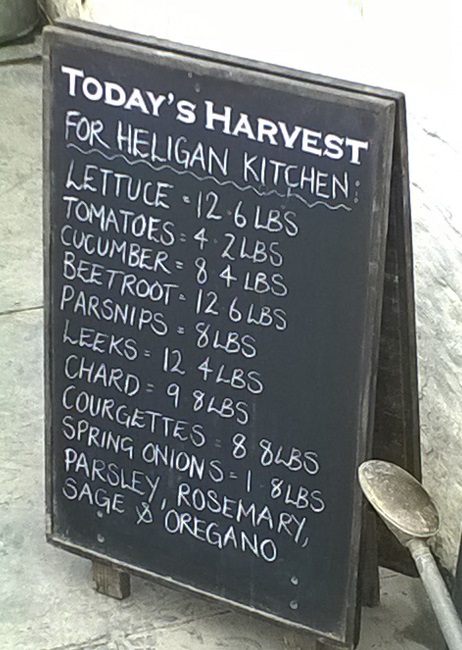 TODAY'S HARVEST
FOR HELIGAN KITCHEN:
LETTUCE = 12.6LBS
TOMATOES = 4.2LBS
CUCUMBER = 8 4LBS
BEETROOT = 12 6LBS
PARSNIPS = 8LBS
LEEKS = 12 4LBS
CHARD = 9 8LBS
COURGETTES = 8 8LBS
SPRING ONIONS = 1.8LBS
PARSLEY, ROSEMARY,
SAGE & OREGANO